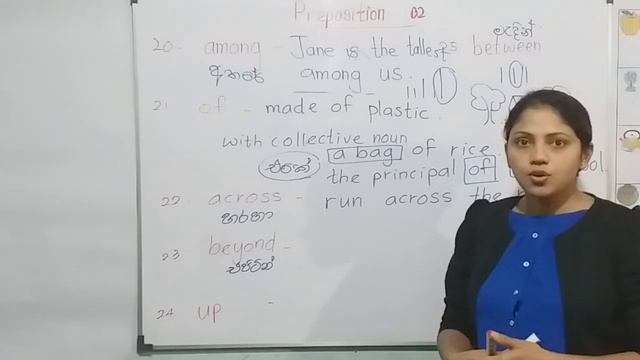 Preposition 02
20. among - Jane is the tallest between
අතරේ among us.
21 of - made of plastic.
with collective noun
එකේ a bag of rice.
the principal of
22 across - run across the
හරහා
23 beyond -
එපිටින්
24 up -